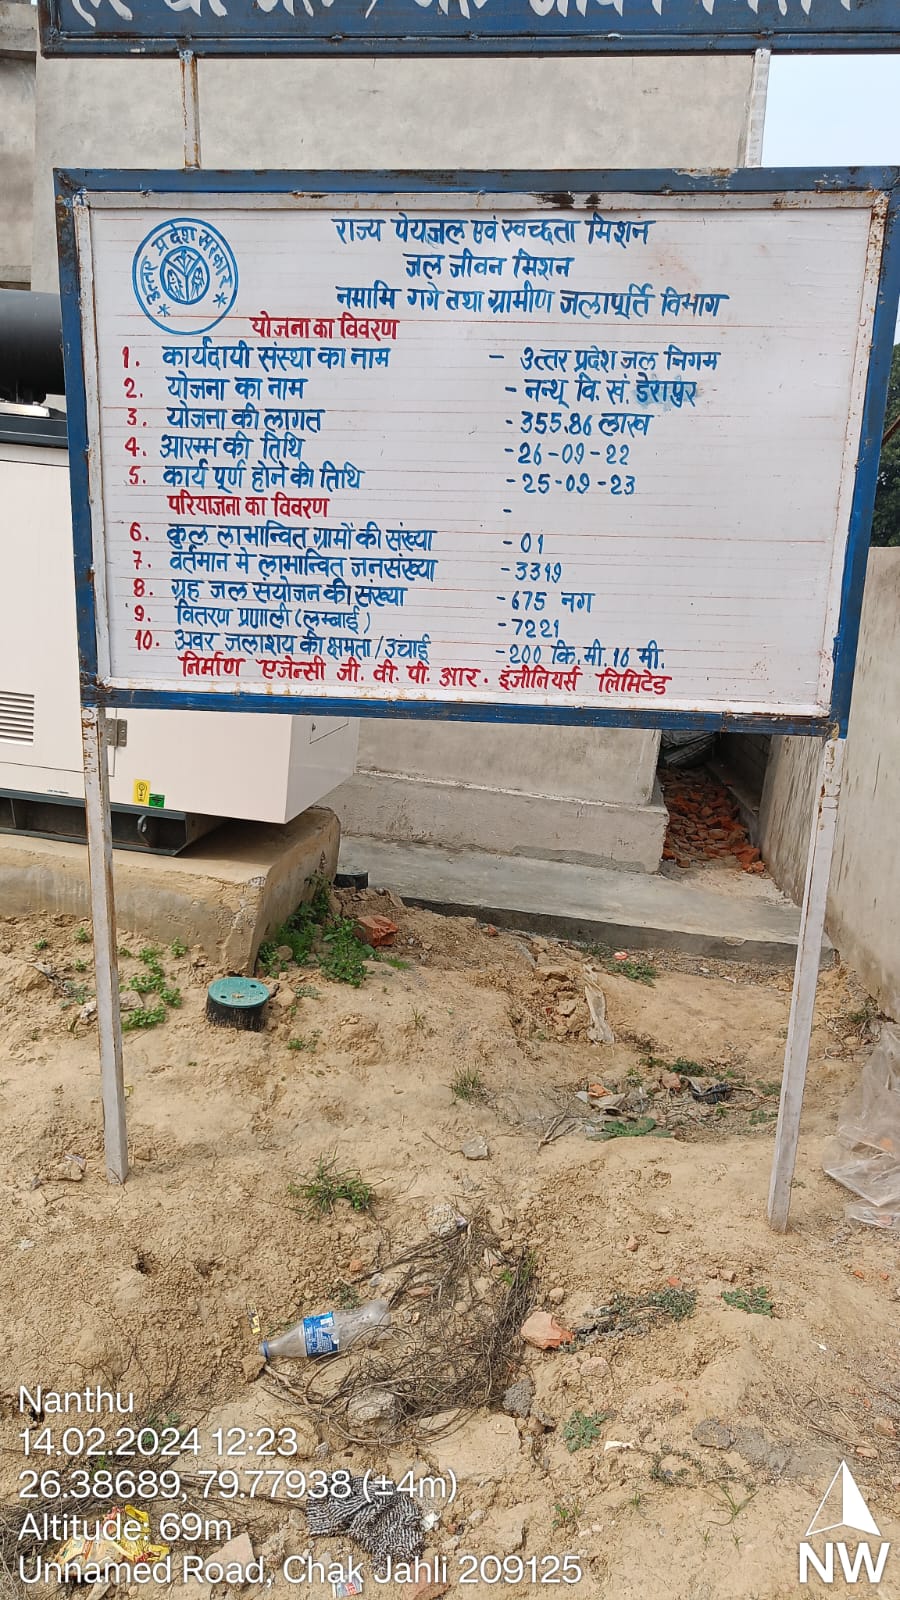 उत्तर प्रदेश सरकार
राज्य पेयजल एवं स्वच्छता मिशन
जल जीवन मिशन
नमामि गंगे तथा ग्रामीण जलापूर्ति विभाग
योजना का विवरण
1. कार्यदायी संस्था का नाम - उत्तर प्रदेश जल निगम
2. योजना का नाम - नन्थू वि. सं. डेरापुर
3. योजना की लागत - 355.86 लाख
4. आरम्भ की तिथि - 26-09-22
5. कार्य पूर्ण होने की तिथि - 25-09-23
परियाजना का विवरण -
6. कुल लाभान्वित ग्रामों की संख्या - 01
7. वर्तमान मे लाभान्वित जनसंख्या - 3319
8. ग्रह जल संयोजन की संख्या - 675 नग
9. वितरण प्रणाली (लम्बाई) - 7221
10. अवर जलाशय की क्षमता / उचाई - 200 कि.मी. 16 मी.
निर्माण एजेन्सी जी. वी. पी. आर. इंजीनियर्स लिमिटेड
Nanthu
14.02.2024 12:23
26.38689, 79.77938 (±4m)
Altitude: 69m
Unnamed Road, Chak Jahli 209125
NW